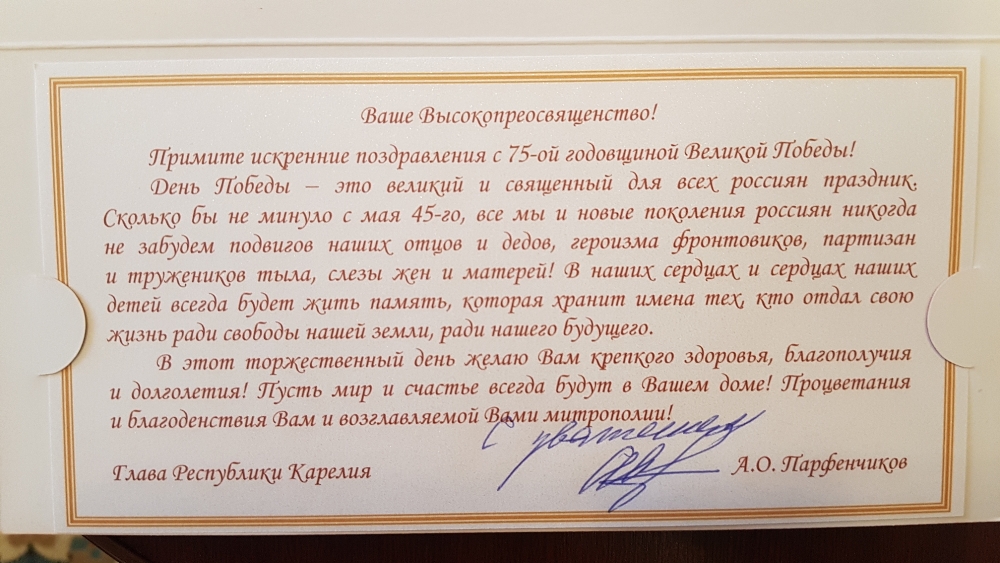 Ваше Высокопреосвященство!
Примите искренние поздравления с 75-ой годовщиной Великой Победы!
День Победы – это великий и священный для всех россиян праздник.
Сколько бы не минуло с мая 45-го, все мы и новые поколения россиян никогда
не забудем подвигов наших отцов и дедов, героизма фронтовиков, партизан
и тружеников тыла, слезы жен и матерей! В наших сердцах и сердцах наших
детей всегда будет жить память, которая хранит имена тех, кто отдал свою
жизнь ради свободы нашей земли, ради нашего будущего.
В этот торжественный день желаю Вам крепкого здоровья, благополучия
и долголетия! Пусть мир и счастье всегда будут в Вашем доме! Процветания
и благоденствия Вам и возглавляемой Вами митрополии!
С уважением
Глава Республики Карелия А.О. Парфенчиков